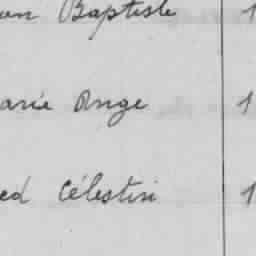 an Baptiste 1
arie Ange 1
ed Célestin 1